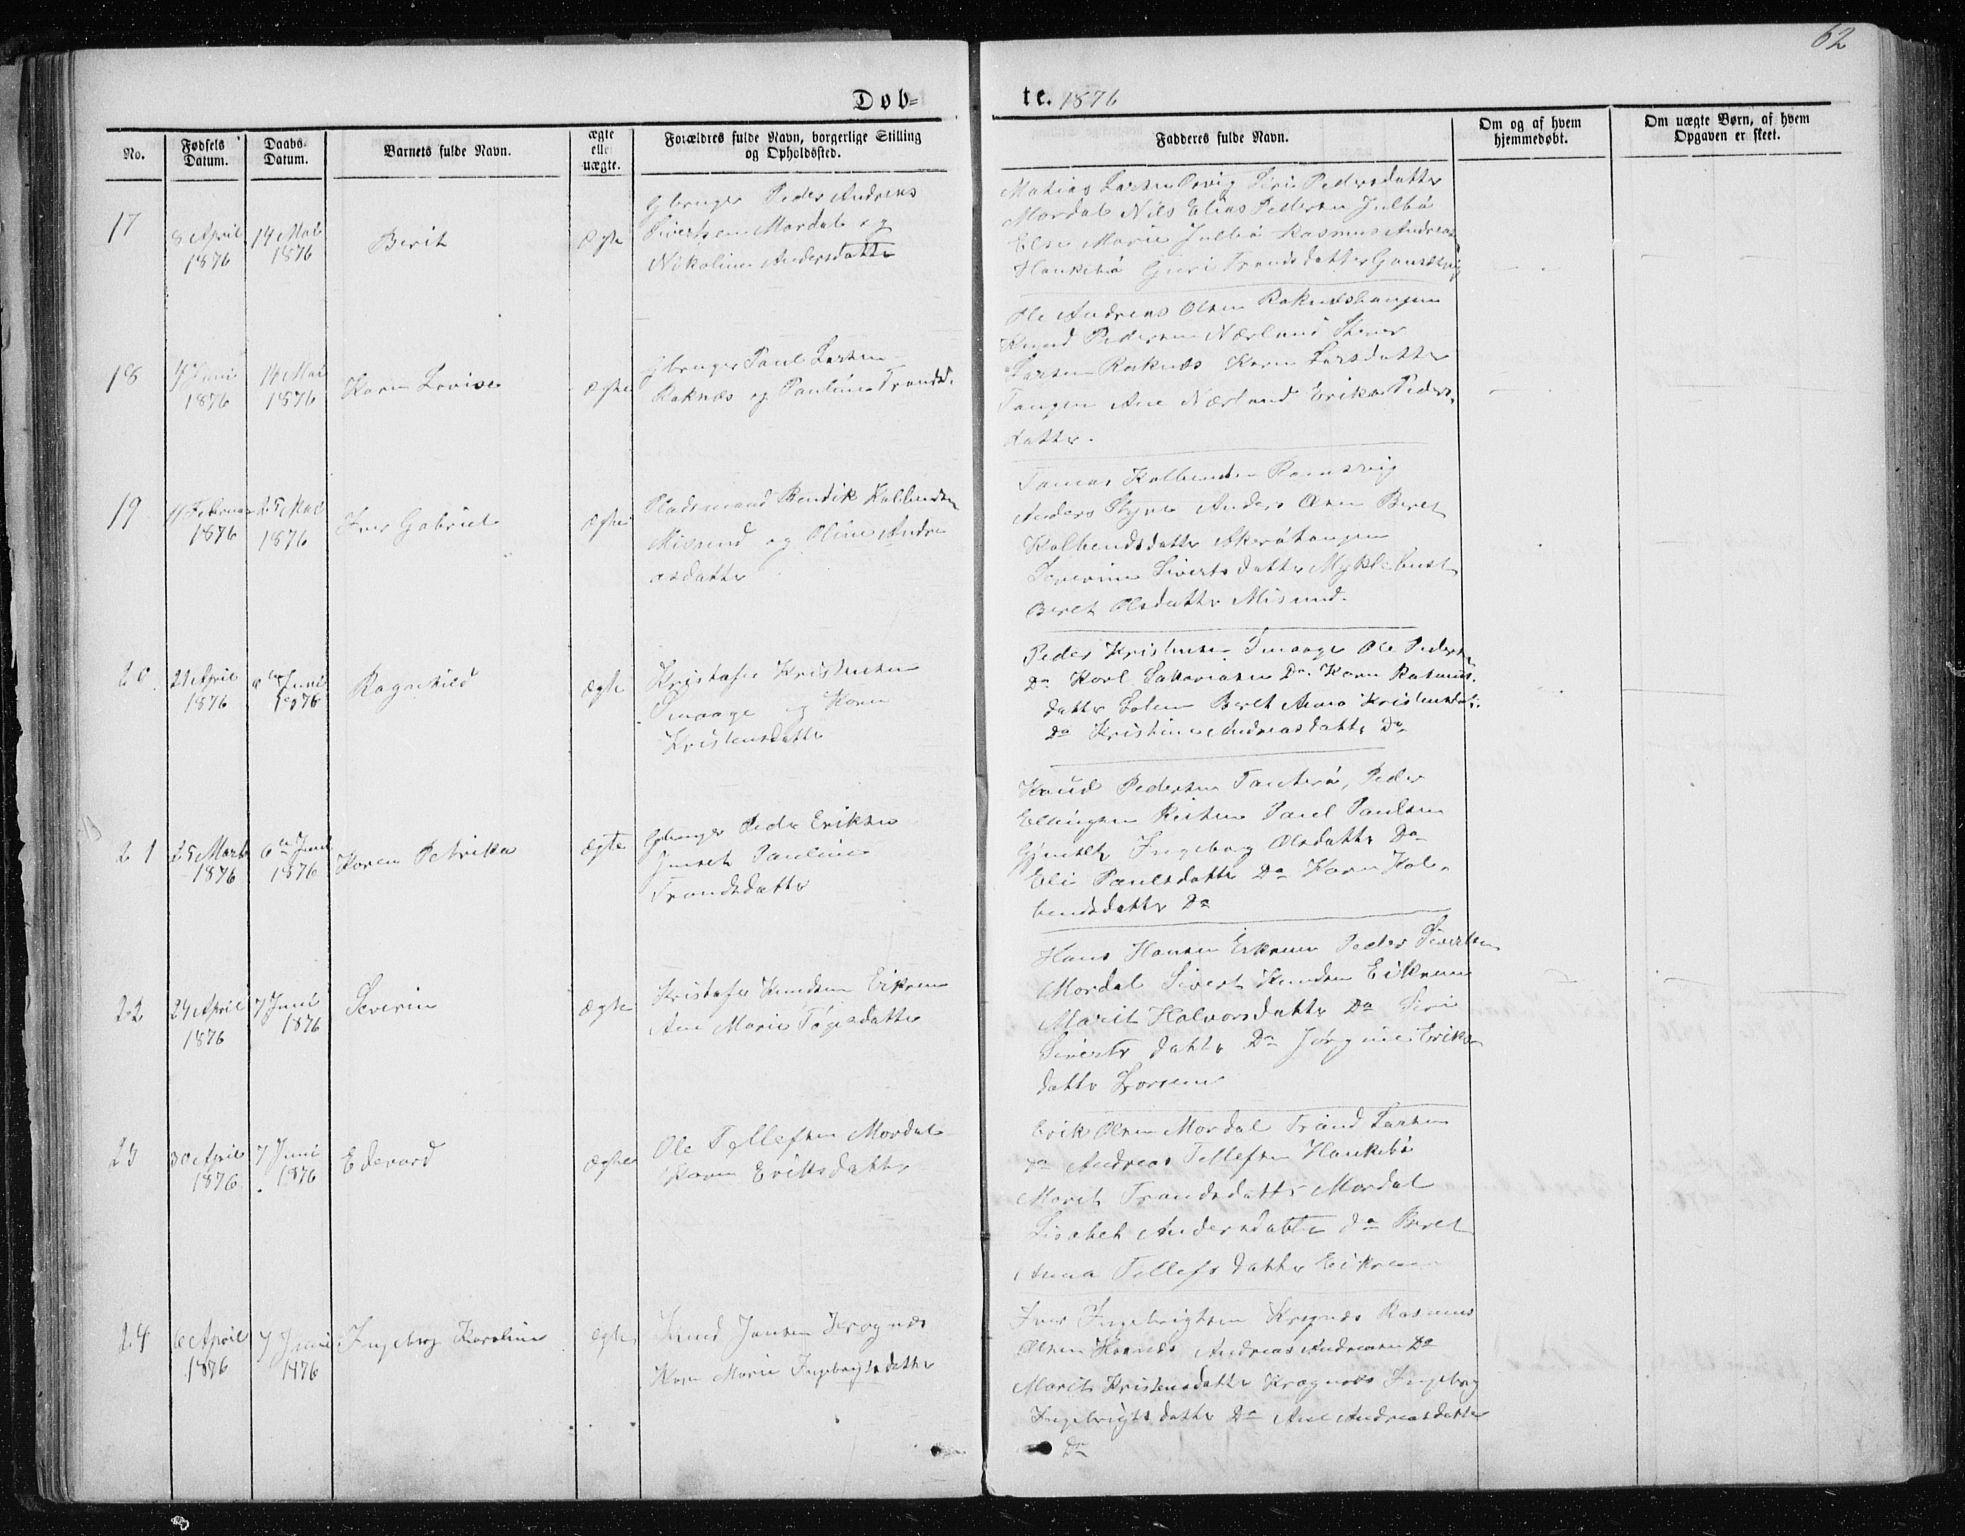 62
Døb=
te. 1876
No.
Fødsels Datum.
Daabs- Datum.
Barnets fulde Navn.
ægte eller uægte.
Forældres fulde Navn, borgerlige Stilling og Opholdssted.
Fadderes fulde Navn.
Om og af hvem hjemmedøbt.
Om uægte Børn, af hvem Opgaven er skeet.
17
8 April 1876
14 Mai 1876
Berit
Ægte
Gbruger Peder Andreas
Sivertsen Mordal og
Nikoline Andersdatter
Matias Larsen Orvig Siri Pedersdatter
Mordal Nils Elias Pedersen Julbø
Else Marie Julbø Rasmus Andreas
Haukebø Guri Trondsdatter
18
1876
14 Mai 1876
Karen Lovise
Ægte
Gbruger Paul Larsen
Raknæs og Pauline Trondsd.
Ole Andreas Olsen Raknæshaugen
Knud Pedersen Nærland
Larsen Raknæs Karen Larsdatter
Tangen Ane Nærland Erika Peders
datter.
19
11 Februar 1876
25 Mai 1876
Iver Gabriel
Ægte
Pladsmand Bendik Kolbendsen
Misund og Oline Andre
asdatter
Anders Anders Olsen Beret
Kolbendsdatter Akerøtangen
Severine Sivertsdatter Myklebust
Beret Olsdatter Misund.
20
21 April 1876
6te Juni 1876
Ragnhild
Ægte
Kristofer Kristensen
Smaage og Karen
Kristensdatter
Peder Kristensen Smaage Ole Pedersen
Do Karl Sakariasen Do Karen Rasmus
datter Beret Anna Kristensdat.
Do Kristine Andreasdatter Do
21
25 Marts 1876
6te Juni 1876
Karen Petrika
Ægte
Gbruger Peder Eriksen
Pauline
Trondsdatter
Knud Pedersen Tautrø, Peder
Ellingsen Paul Paulsen
Ingeborg Olsdatter Do
Eli Paulsdatter Do Karen Kol-
bendsdatter Do
22
24 April 1876
7 Juni 1876
Severin
Ægte
Kristofer Knudsen Eikrem
Ane Marie
Hans Hansen Eikrem Peder Sivertsen
Mordal Sivert Knudsen Eikrem
Marit Halvorsdatter Do Siri
Sivertsdatter Do Jørgine Eriks
datter
23
30 April 1876
7 Juni 1876
Edevard
Ægte
Ole Tellefsen Mordal
Karen Eriksdatter
Erik Olsen Mordal Trond Larsen
Do Andreas Tellefsen Haukebø
Marit Trondsdatter Mordal
Lisabet Andersdatter Do Beret
Anna Tellefsdatter Eikrem
24
6 April 1876
7 Juni 1876
Ingeborg Karoline
Ægte
Knud Jansen Kragnæs
Karen Marie Ingebrigtsdatter
Iver Ingebrigtsen Kragnæs Rasmus
Olsen Andreas Andreasen Do
Marit Kristensdatter Kragnæs Ingeborg
Ingebrigtsdatter Do Ane Andreasdatter
Do